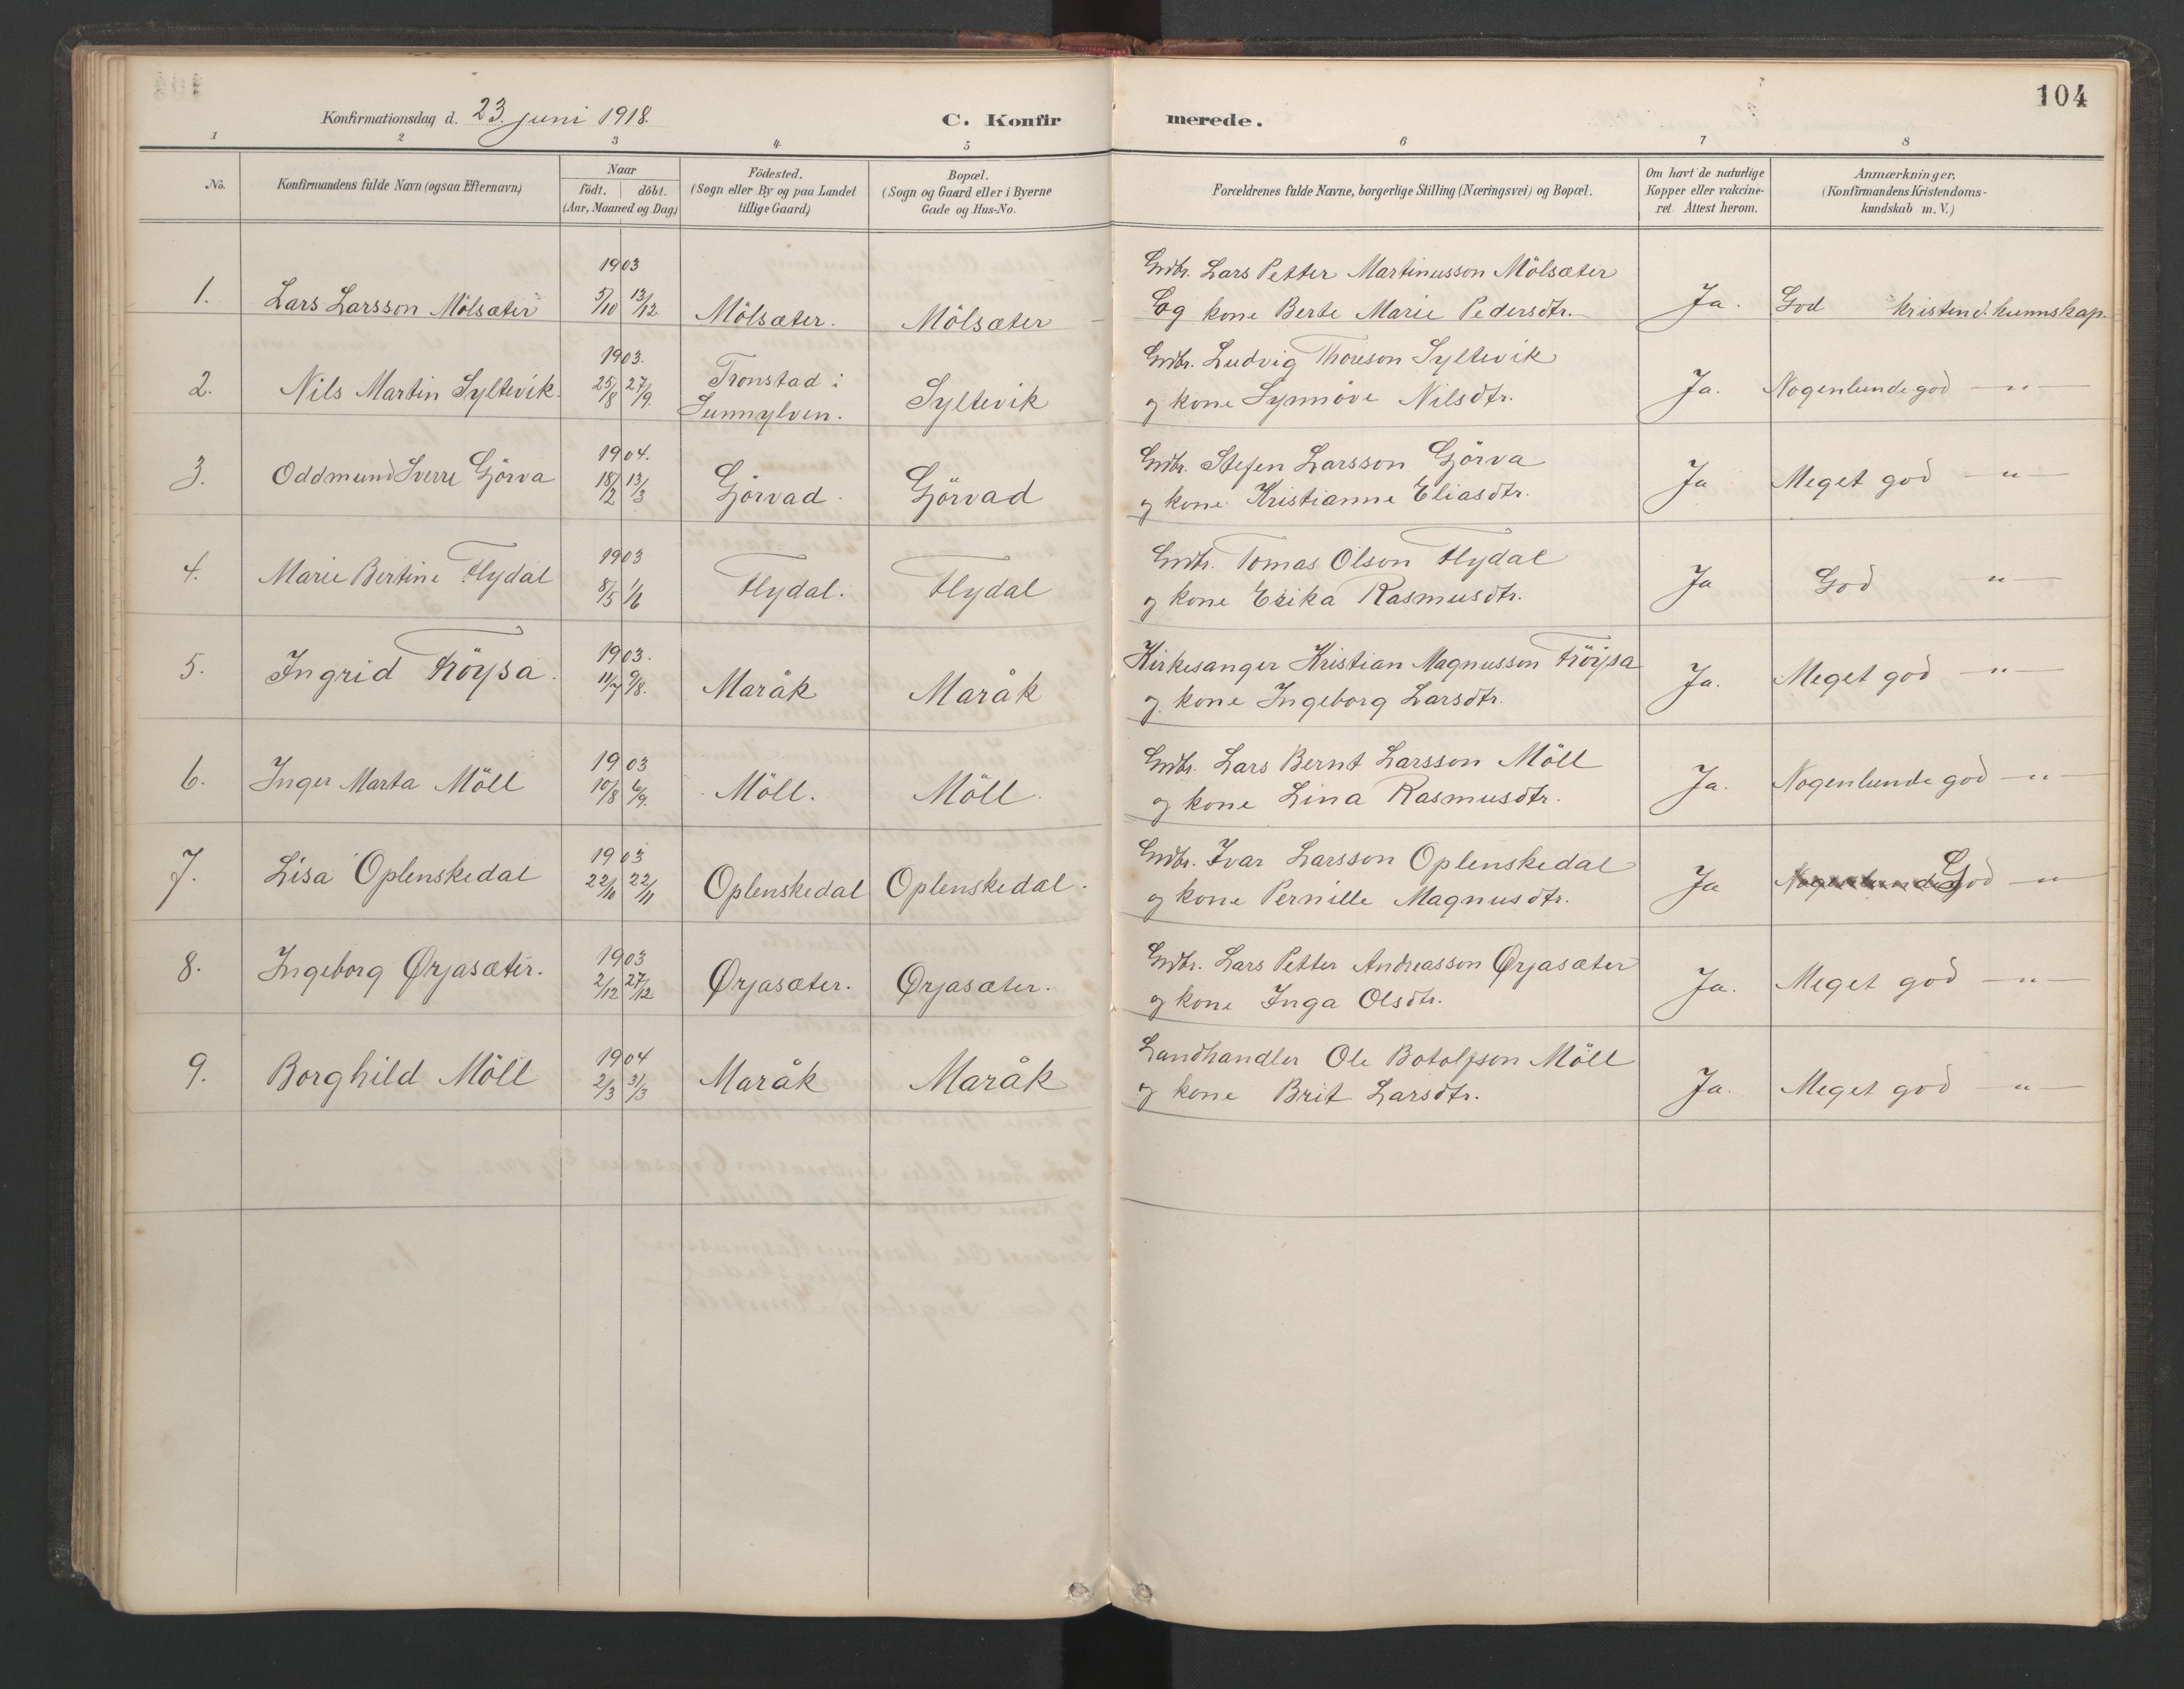 104
Konfirmationsdag d. 23. juni 1918.
C. Konfirmerede.
1 2 3 4 5 6 7 8
No.
Konfirmandens fulde Navn (ogsaa Efternavn)
Naar
födt. döbt.
(Aar, Maaned og Dag)
Födested.
(Sogn eller By og paa Landet
tillige Gaard)
Bopæl.
(Sogn og Gaard eller i Byerne
Gade og Hus-No.
Forældrenes fulde Navne, borgerlige Stilling (Næringsvei) og Bopæl.
Om havt de naturlige
Kopper eller vakcine-
ret. Attest herom.
Anmærkninger.
(Konfirmandens Kristendoms-
kundskab m. V.)
1903
Gmbr. Lars Petter Martinusson Mölsæter
1. Lars Larsson Mölsæter 5/10 13/12 Mölsæter. Mölsæter
Og kone Berte Marie Pedersdtr. Ja. God kristend. kunnskap.
1903.
Gmbr. Ludvig Thoreson Syltevik
2. Nils Martin Syltevik. 25/8 27/9. Tronstad i
Sunnylven. Syltevik
og kone Synnöve Nilsdtr. Ja. Nogenlunde god — " —
1904.
Gmbr. Stefen Larsson Gjörva
3. Oddmund Sverre Gjörva 18/2 13/3 Gjörvad. Gjörvad
og kone Kristianne Eliasdtr. Ja Meget god — " —
1903
Gmbr. Tomas Olson Flydal
4. Marie Bertine Flydal 8/5 1/6 Flydal. Flydal
og kone Erika Rasmusdtr. Ja God " —
1903.
Kirkesanger Kristian Magnusson Fröysa
5. Ingrid Fröysa. 11/7 9/8. Maråk Maråk
og kone Ingeborg Larsdtr. Ja. Meget god — " —
1903
Gmbr. Lars Bernt Larsson Möll
6. Inger Marta Möll 10/8 6/9. Möll. Möll.
og kone Lina Rasmusdtr. Ja. Nogenlunde god — " —
1903
Gmbr. Ivar Larsson Oplenskedal
7. Lisa Oplenskedal 22/10 22/11 Oplenskedal Oplenskedal.
og kone Pernille Magnusdtr. Ja Nogenlunde God — " —
1903
Gmbr. Lars Petter Andreasson Ørjasæter
8. Ingeborg Ørjasæter. 2/12 27/12 Ørjasæter. Ørjasæter.
og kone Inga Olsdtr. Ja. Meget god — " —
1904
Landhandler Ole Botolfson Möll
9. Borghild Möll 2/3 31/3 Maråk Maråk
og kone Brit Larsdtr. Ja. Meget god — " —